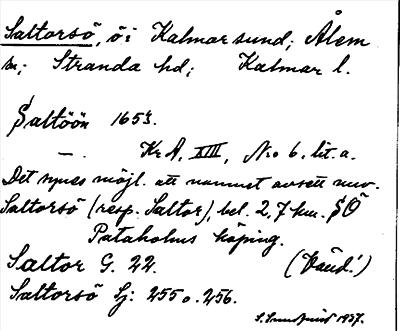 Saltorsö, ö i Kalmarsund; Ålem
sn; Stranda hd; Kalmar l.
Saltöön 1653.
—. Kr A, XIII, Nro 6. lit. a.
Det synes möjl. att namnet avsett nuv.
Saltorsö (resp. Saltor), bel. 2,7 km. SÖ
Pataholms köping.
Saltor G. 22. (Känd!)
Saltorsö Lj: 255 o. 256.
S. Sundquist 1937.